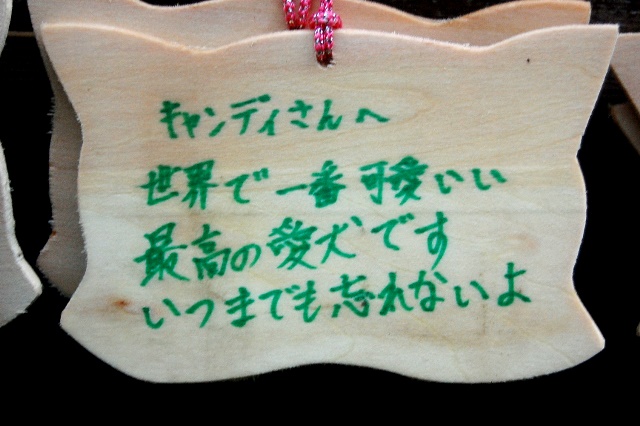 キャンディさんへ
世界で一番可愛いい
最高の愛犬です
いつまでも忘れないよ